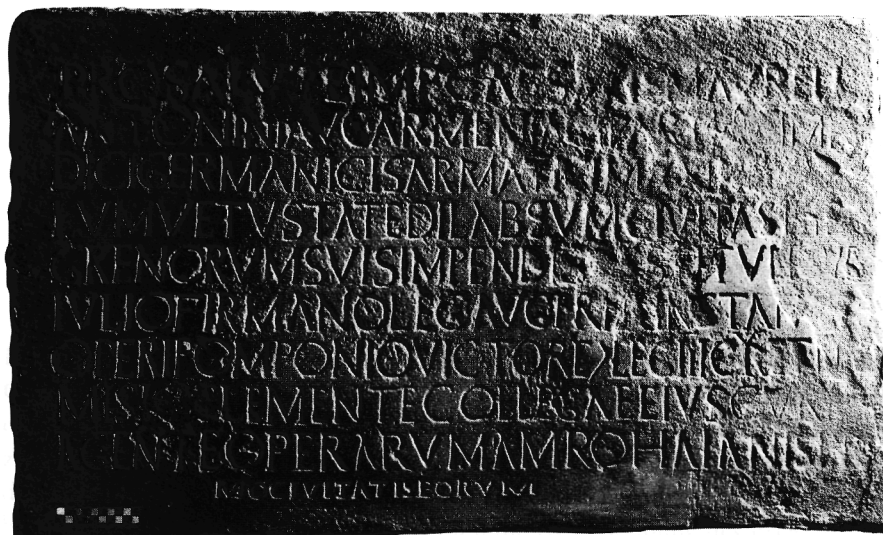 PRO SALVTE IMP CAES M AVRELI
ANTONINI AVG ARMENIACI PARTHICI ME
DICI GERMANICI SARMATICI
RVM VETVSTATE DILABSVM CIVITAS
RENORVM SVIS IMPENDIS
IVLIO FIRMANO LEG AVG PR PR INSTAN
OPERI POMPONIO VICTORE > LEG III CYR
CLEMENTE COLLEGA EIVS CVR
OPERARVM AMRO HAIANIS
CIVITATIS EORVM